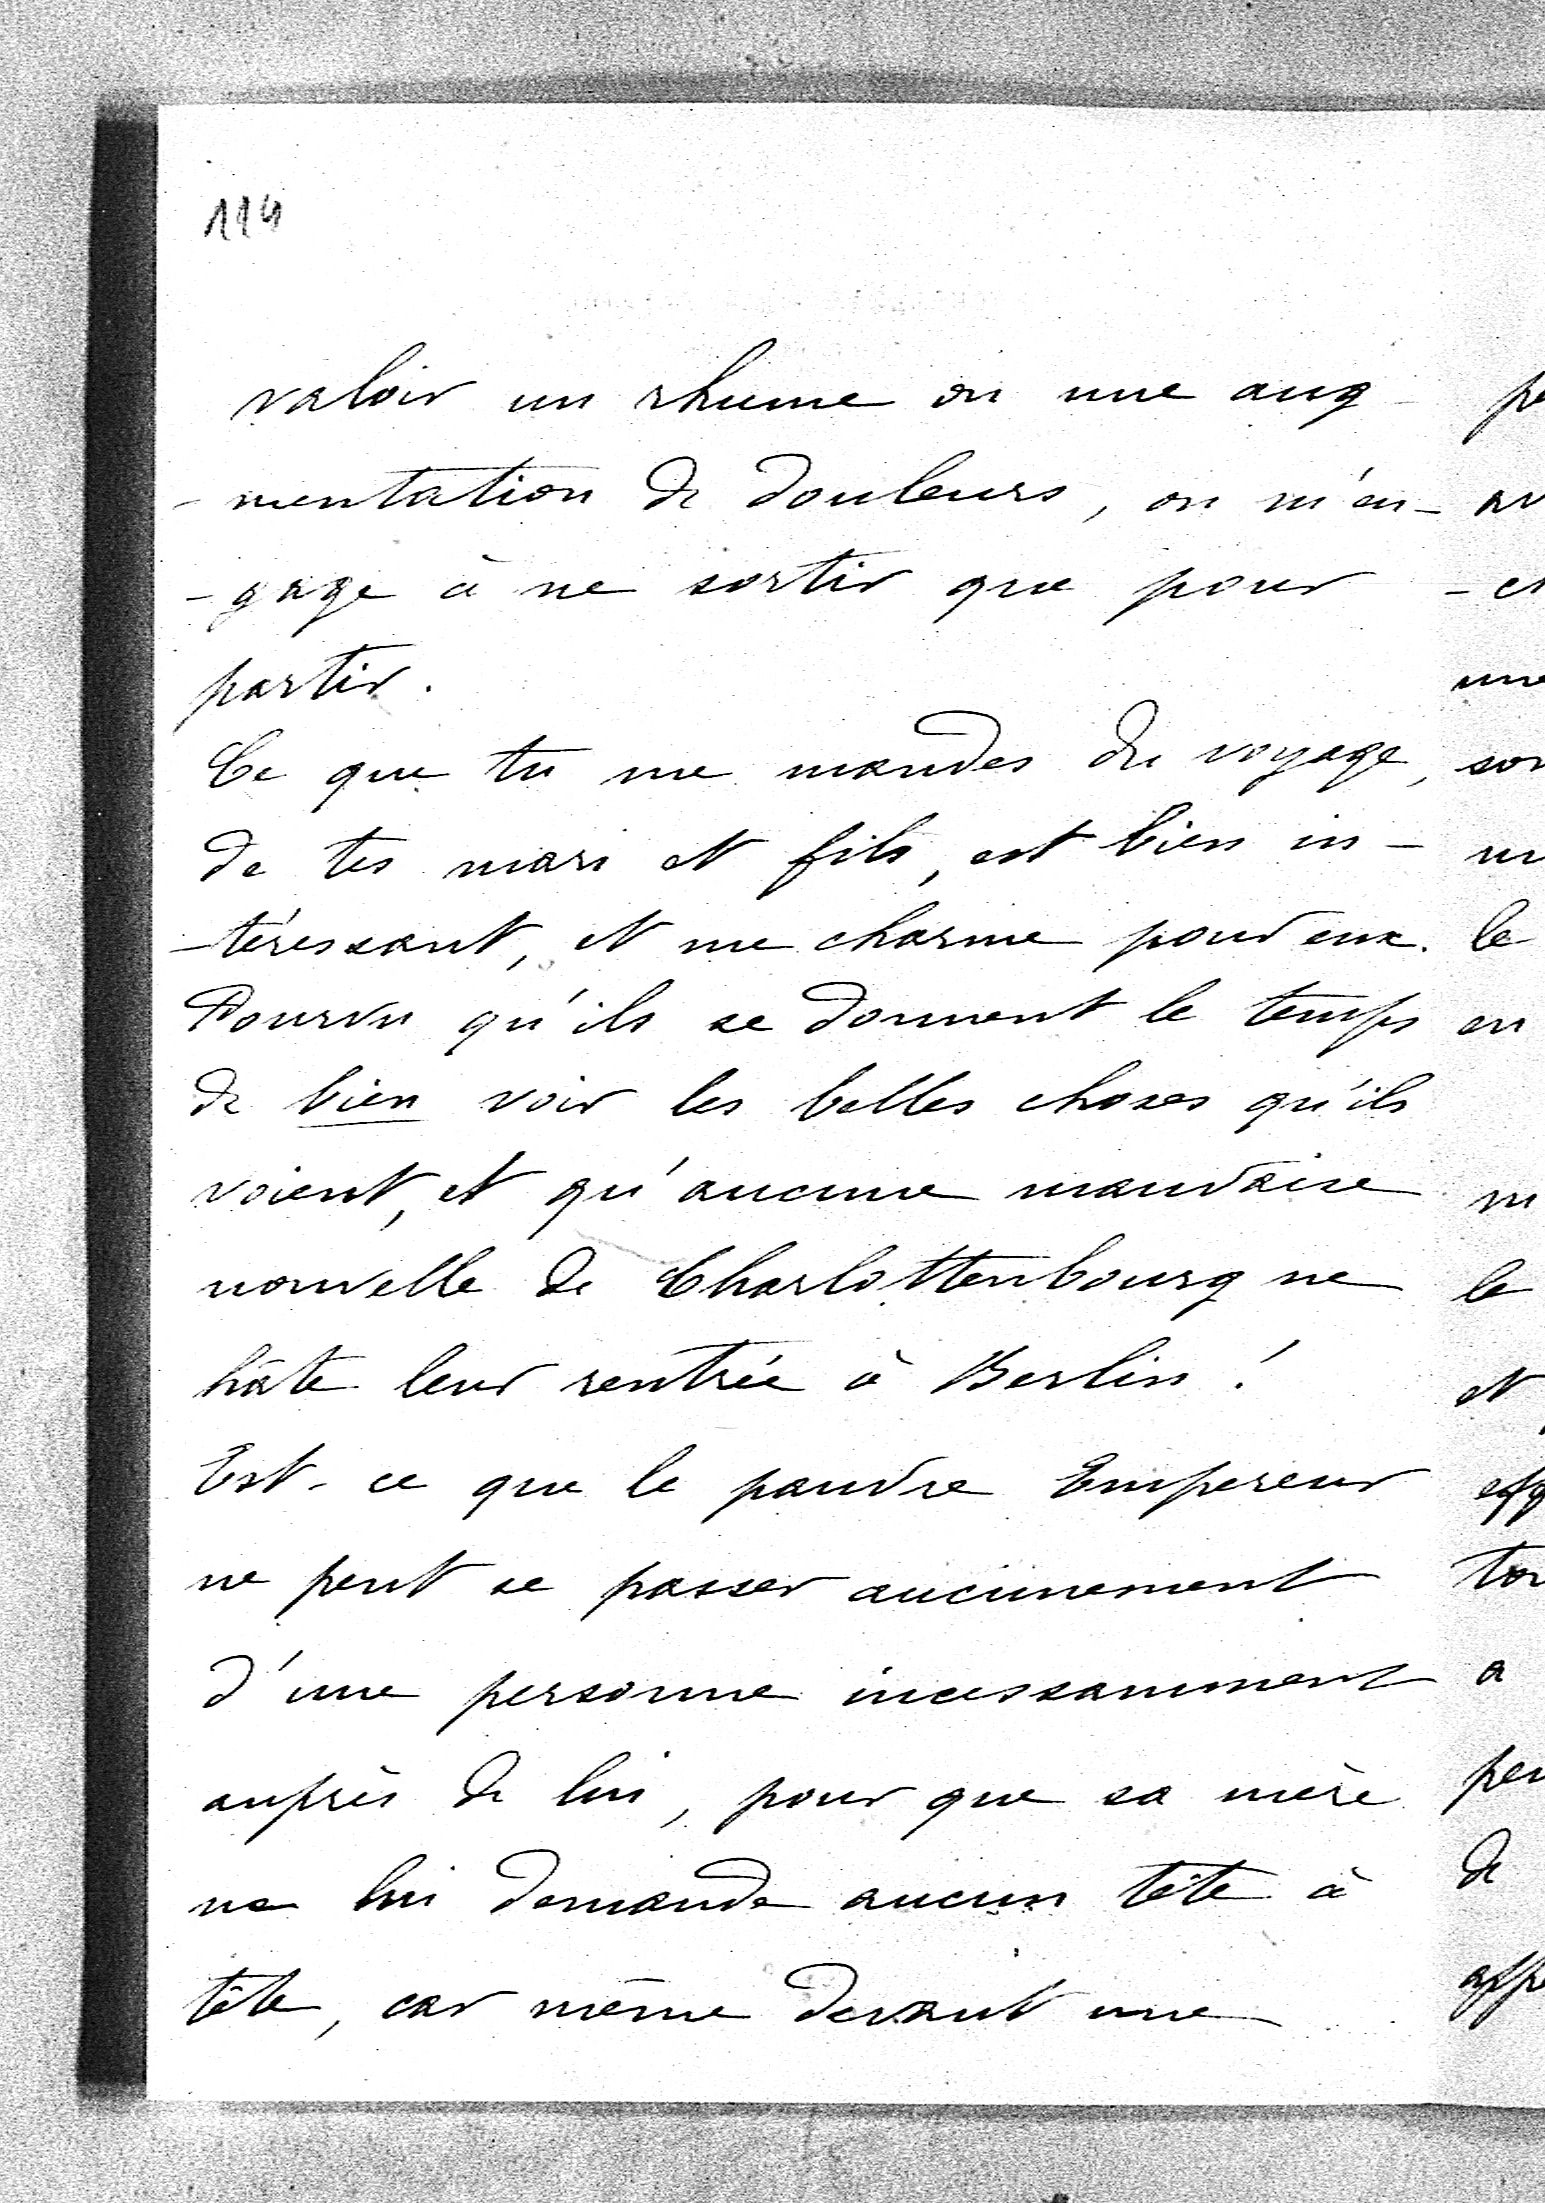 114
valoir un rhume ou une aug-
-mentation de douleurs, on m'en-
-gage à ne sortir que pour
partir.
Ce que tu me mandes du voyage,
de tes mari et fils, est bien in-
-téressant, et me charme pour eux.
Pourvu qu'ils se donnent le temps
de bien voir les belles choses qu'ils
voient, et qu'aucune mauvaise
nouvelle de Charlottenbourg ne
hâte leur rentrée à Berlin!
Est-ce que le pauvre Empereur
ne peut se passer aucunement
d'une personne incessamment
auprès de lui, pour que sa mère
ne lui demande aucun tête à
tête, car même devant une